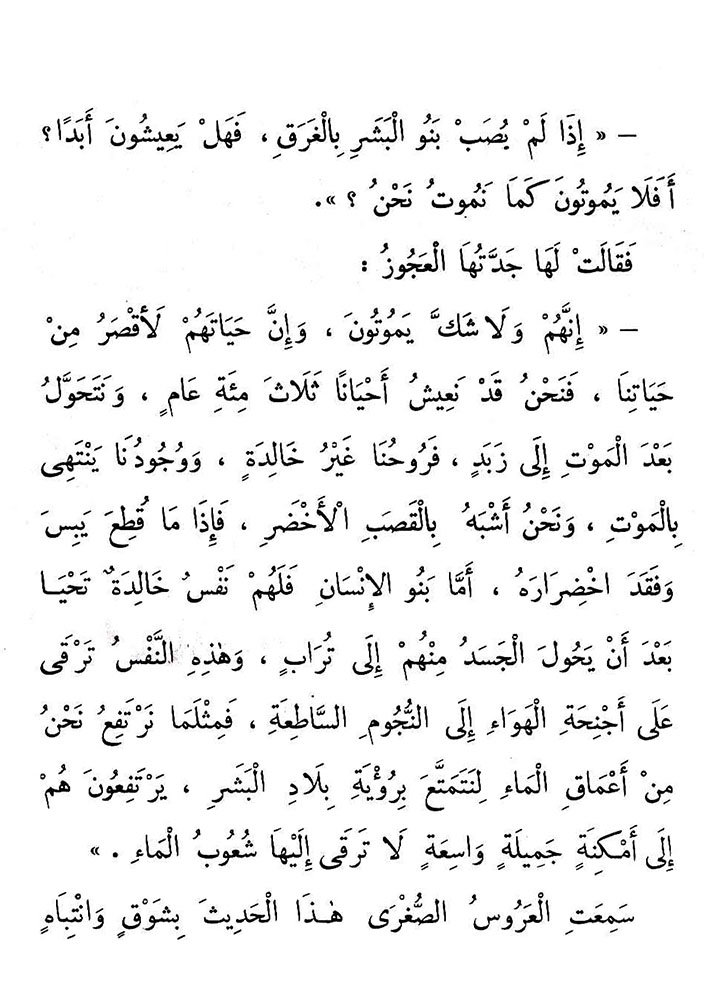 – « إِذَا لَمْ يُصَبْ بَنُو الْبَشَرِ بِالْغَرَقِ ، فَهَلْ يَعِيشُونَ أَبَدًا ؟
أَفَلَا يَمُوتُونَ كَمَا نَمُوتُ نَحْنُ ؟ ».
فَقَالَتْ لَهَا جَدَّتُهَا الْعَجُوزُ :
– « إِنَّهُمْ وَلَا شَكَّ يَمُوتُونَ ، وَإِنَّ حَيَاتَهُمْ لَأَقْصَرُ مِنْ
حَيَاتِنَا ، فَنَحْنُ قَدْ نَعِيشُ أَحْيَانًا ثَلَاثَ مِئَةِ عَامٍ ، وَنَتَحَوَّلُ
بَعْدَ الْمَوْتِ إِلَى زَبَدٍ ، فَرُوحُنَا غَيْرُ خَالِدَةٍ ، وَوُجُودُنَا يَنْتَهِى
بِالْمَوْتِ ، وَنَحْنُ أَشْبَهُ بِالْقَصَبِ الْأَخْضَرِ ، فَإِذَا مَا قُطِعَ يَبِسَ
وَفَقَدَ اخْضِرَارَهُ ، أَمَّا بَنُو الإِنْسَانِ فَلَهُمْ نَفْسٌ خَالِدَةٌ تَحْيَا
بَعْدَ أَنْ يَحُولَ الْجَسَدُ مِنْهُمْ إِلَى تُرَابٍ ، وَهٰذِهِ النَّفْسُ تَرْقَى
عَلَى أَجْنِحَةِ الْهَوَاءِ إِلَى النُّجُومِ السَّاطِعَةِ ، فَمِثْلَمَا نَرْتَفِعُ نَحْنُ
مِنْ أَعْمَاقِ الْمَاءِ لِنَتَمَتَّعَ بِرُؤْيَةِ بِلَادِ الْبَشَرِ ، يَرْتَفِعُونَ هُمْ
إِلَى أَمْكِنَةٍ جَمِيلَةٍ وَاسِعَةٍ لَا تَرْقَى إِلَيْهَا شُعُوبُ الْمَاءِ . »
سَمِعَتِ الْعَرُوسُ الصُّغْرَى هٰذَا الْحَدِيثَ بِشَوْقٍ وَانْتِبَاهٍ